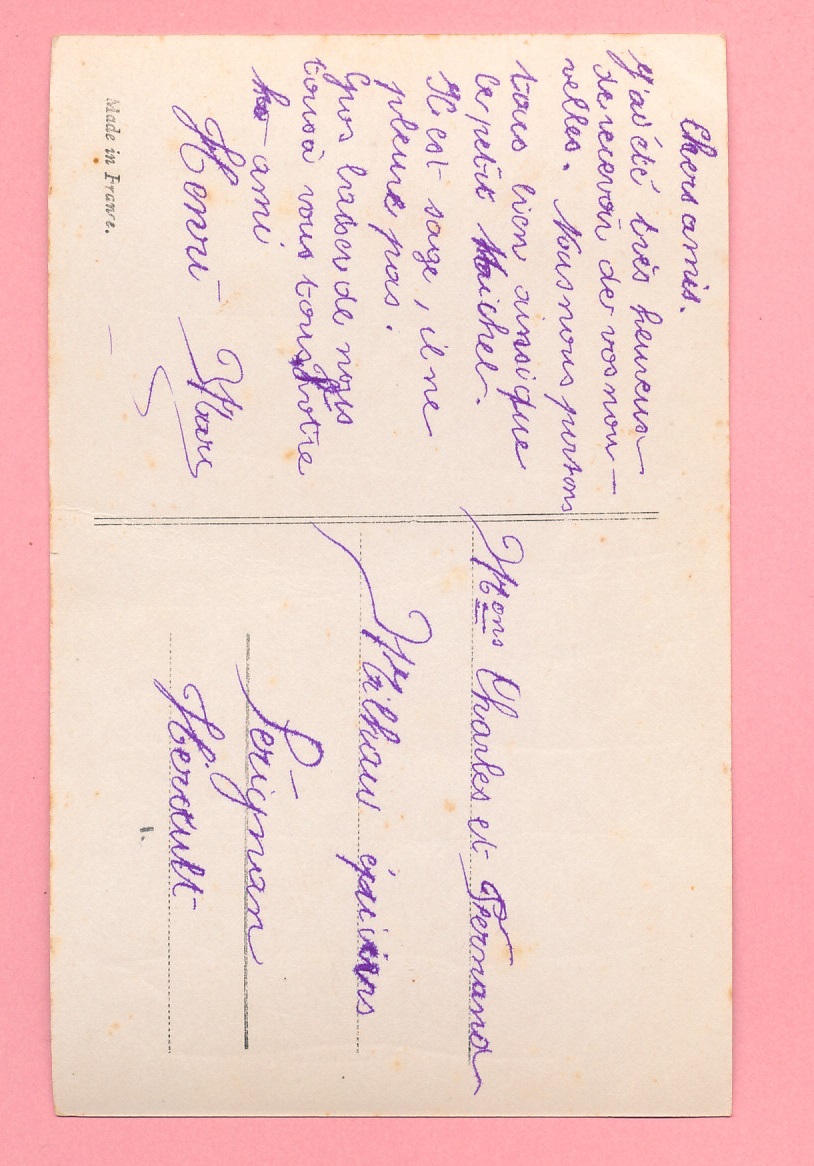 Chers amis.
J'ai été très heureux
de recevoir de vos nou-
velles. Nous nous portons
tous bien ainsi que
le petit Maichel.
Il est sage, il ne
pleure pas.
Gros baiser de nous
tous à vous tous Votre
ami
Henri Marc
Made in France.
Mons Charles et Fernand
Milhau épiciers
Serignan
Herault